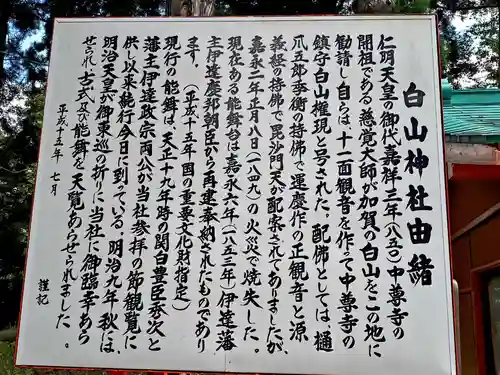 白山神社由緒
仁明天皇の御代嘉祥三年(八五〇)中尊寺の
開祖である慈覚大師が加賀の白山をこの地に
勧請し自らは十一面観音を作って中尊寺の
鎮守白山権現と号された。配佛としては樋
爪五郎季衡の持佛で運慶作の正観音と源
義経の持佛で毘沙門天が配案されてありましたが
嘉永二年正月八日(一八四九)の火災で焼失した。
現在ある能舞台は嘉永六年(一八五三年)伊達藩
主伊達慶邦朝臣から再建奉納されたものであり
ます。(平成十五年国の重要文化財指定)
現行の能舞は、天正十九年時の関白豊臣秀次と
藩主伊達政宗両公が当社参拝の節観覧に
供し以来続行今日に到っている、明治九年秋には、
明治天皇が御東巡の折りに当社に御臨幸あら
せられ古式及び能舞を天覧あらせられました。
平成十五年 七月
謹記